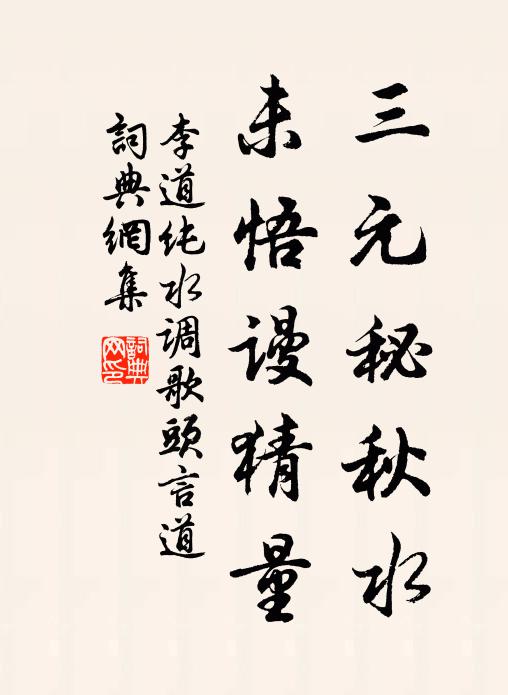 三元秘秋水
未悟谩猜量
李道纯水调歌頭言道
詞典網集
詞典网印